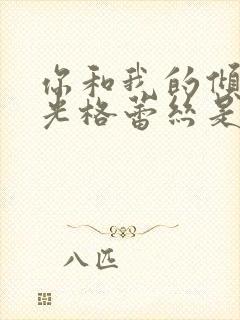 你和我的傾
光格蕾絲是
八匹